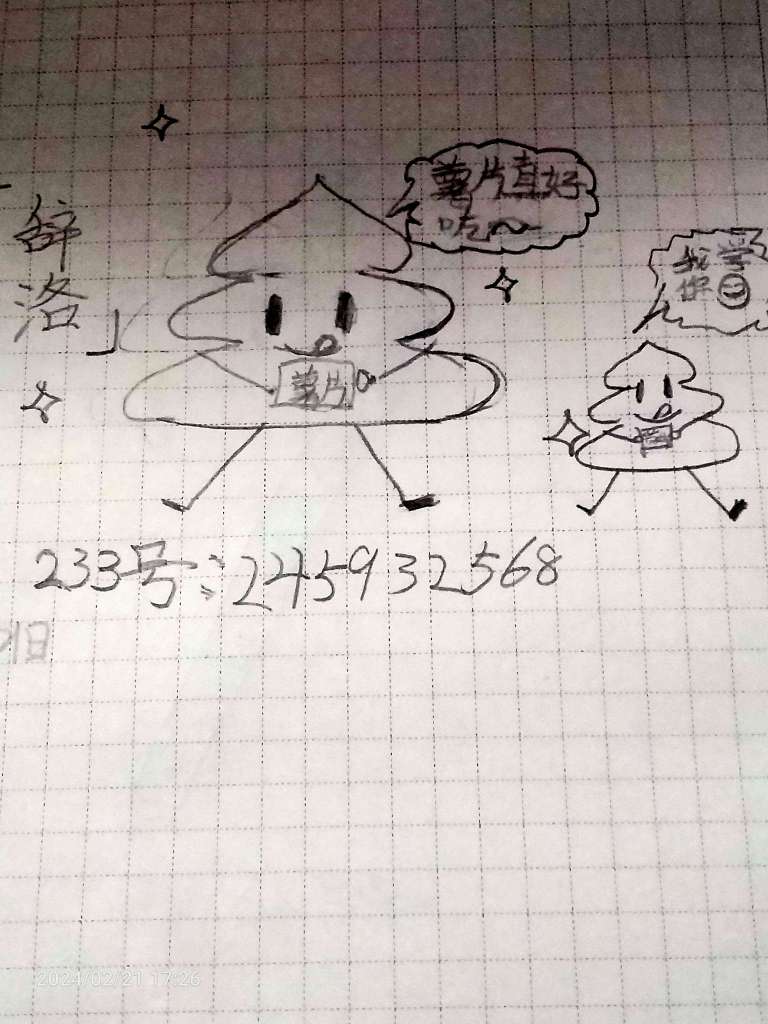 「辞
洛」
薯片真好
吃~
我学
你
薯片
233号:245932568
旧
2024/02/21 17:26